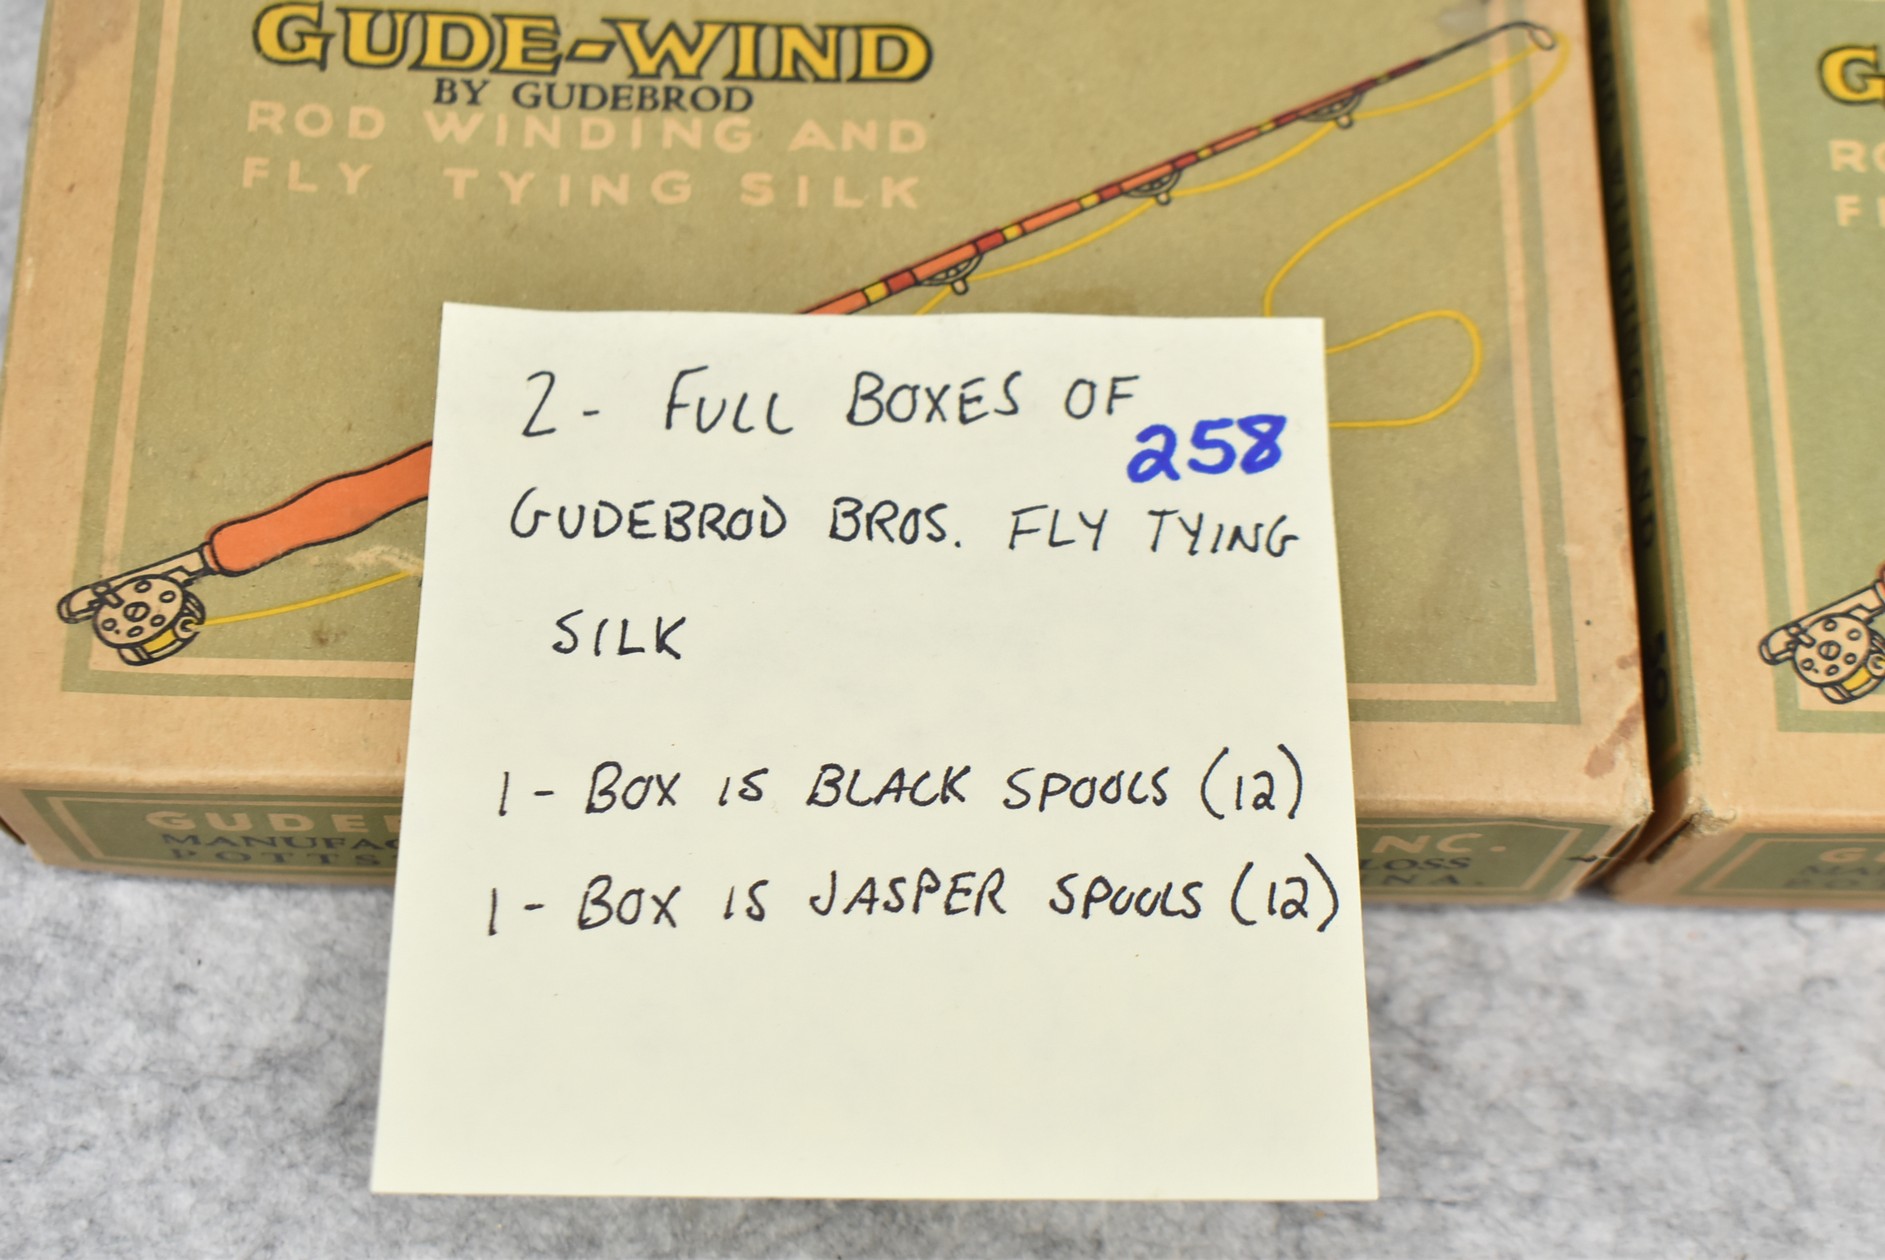 GUDE-WIND
BY GUDEBROD
ROD WINDING AND
FLY TYING SILK
2 - FULL BOXES OF
258
GUDEBROD BROS. FLY TYING
SILK
1 - BOX IS BLACK SPOOLS (12)
1 - BOX IS JASPER SPOOLS (12)
INC.